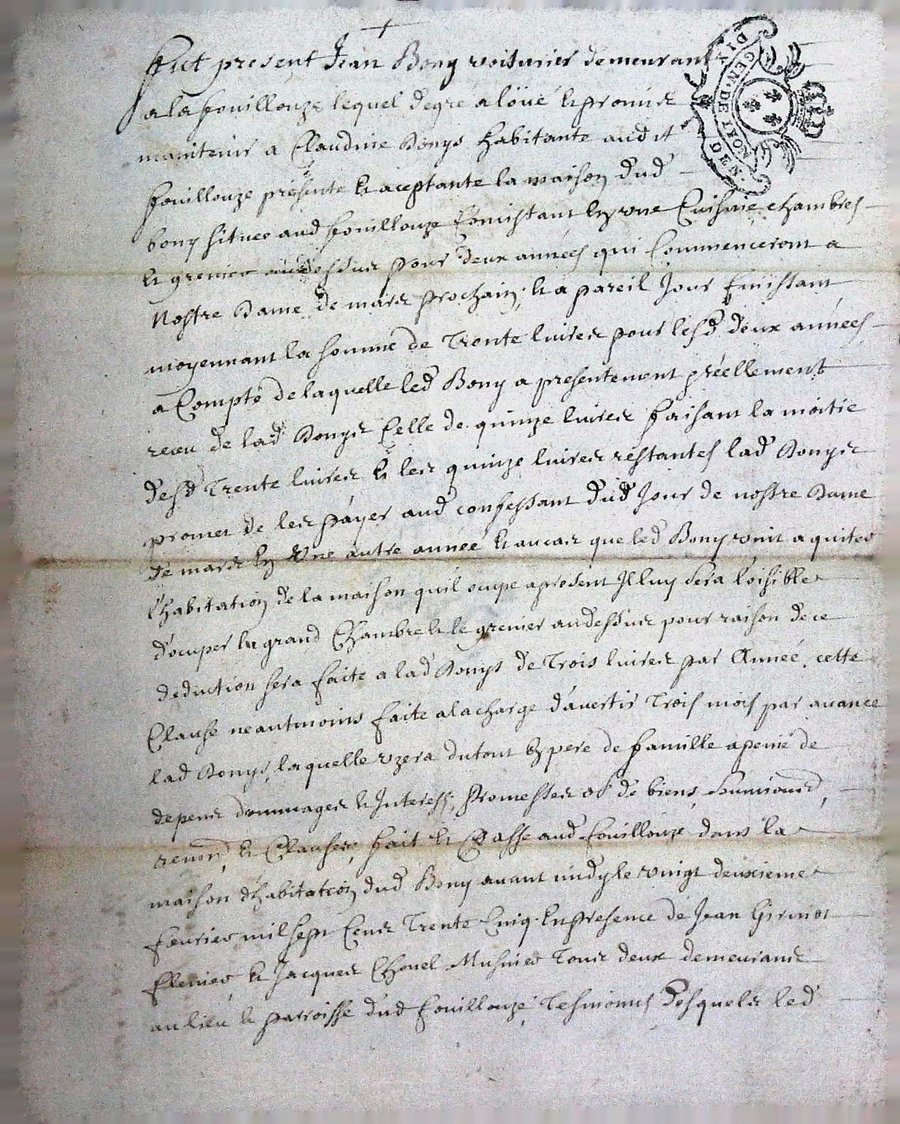 fut present Jean Bony voiturier demeurant
a la fouillouze lequel degré a loüé & promis
maintenir a Claudine Bonys habitante aud it
fouillouze presente & aceptante la maison dud
bony situee aud fouillouze Consistant en une Cuisine chambres
& grenier audessus pour deux années qui Commenceront a
Nostre Dame de mars prochain, & a pareil Jour finissant
moyennant la somme de Trente livres pour lesd deux années
a Compte de laquelle led Bony a presentement réellement
receu de lad Bonys Celle de quinze livres faisant la moitie
desd Trente livres & les quinze livres restantes lad Bonys
promet de les payer aud confessant dud Jour de nostre Dame
de mars en Une autre année & au cas que led Bony vint a quiter
l'habitation de la maison quil ocupe apresent Il luy sera loisible
d'ocuper la grand Chambre & le grenier audessus pour raison de ce
deduction sera faite a lad Bonys de Trois livres par Année, cette
Clause neantmoins faite a la charge d'avertir Trois mois par avance
lad Bonys, laquelle uzera du tout en pere de famille apeine de
depens dommages & Interests, Promesses ob de biens, soumissions,
renon, & Clauses, fait & Passé aud fouillouze dans la
maison d'habitation dud Bony avant midy le vingt deuxieme
fevrier mil sept Cens Trente Cinq En presence de Jean
& Jacques Tous deux demeurans
au lieu & parroisse dud fouillouze, Tesmoins Desquels led
GEN DE LYON